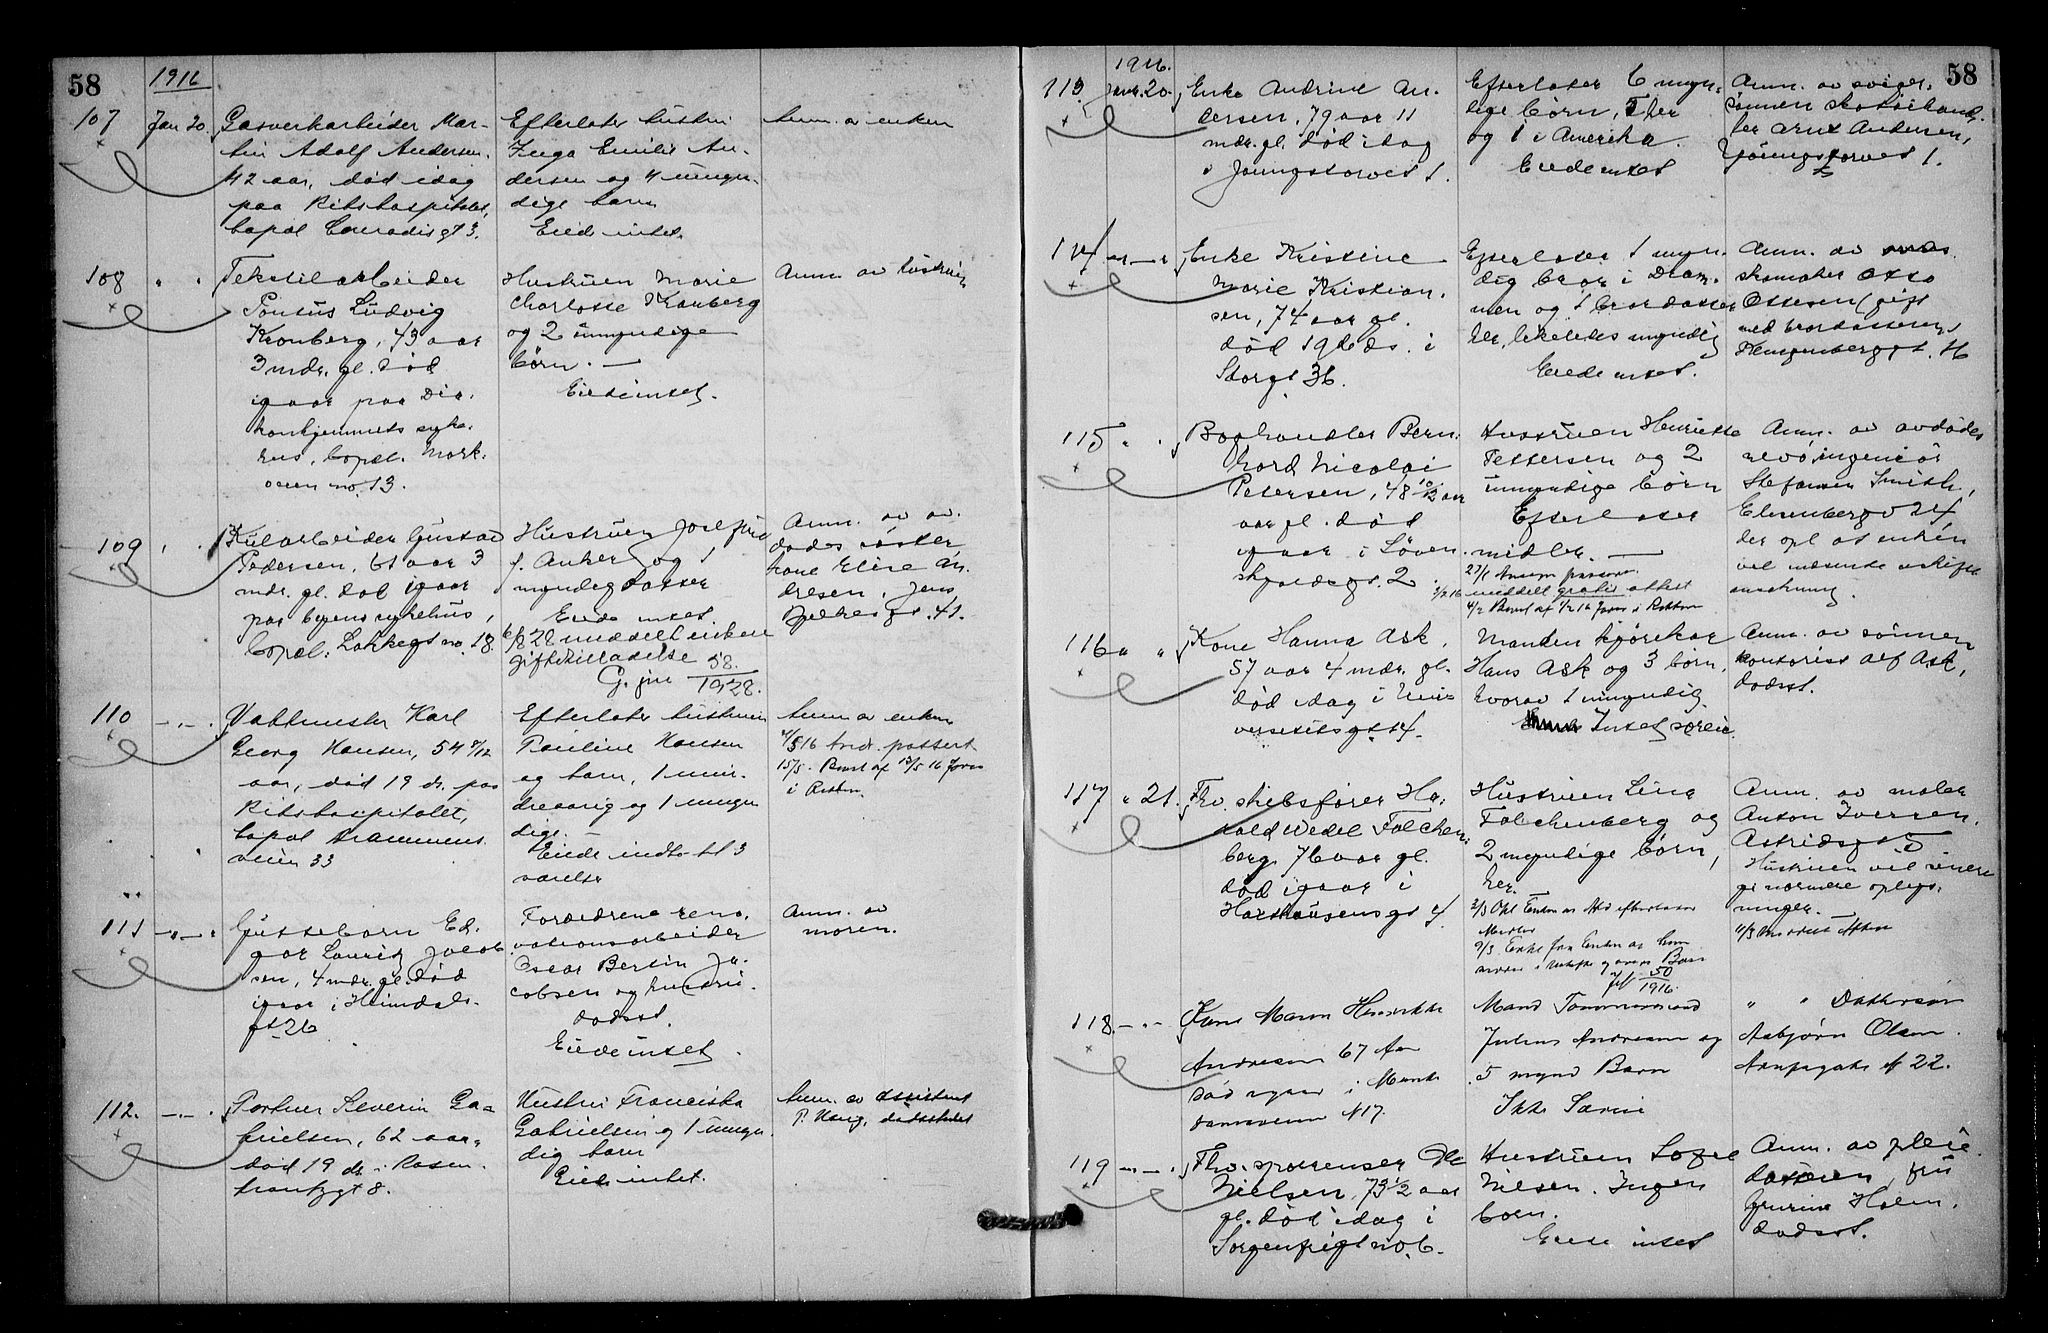 58
1916
107
Jan 20.
Gasverkarbeider Mar-
tin Adolf Andersen.
42 aar, død idag
paa Rikshospitalet,
bopæl Conradisgt 3.
Efterlater hustru
Inga Emilie An-
dersen og 4 umyn-
dige barn
Eied intet.
Anm. av enken
108
Tekstilarbeider
Pontus Ludvig
Kronberg, 43 aar
3 mdr. gl. død
igaar paa Dia-
konhjemmets syke-
hus, bopæl. Mark-
veien no. 13.
Hustruen Marie
Charlotte Kronberg
og 2 umyndige
børn. —
Eiede intet.
Anm. av hustruen
109
Gustav
Pedersen, 61 aar 3
mdr. gl. død igaar
paa byens sykehus,
bopæl: Lakkegt no. 18.
Hustruen Josefine
f. Anker og 1
myndig datter
Eiede intet
6/8 28 meddelt enken
giftetilladelse
G. jnr 58./1928.
Anm. av av-
dødes søster
kone Elise An-
dresen, Jens
Bjelkes gt. 41.
110
Vaktmester Karl
Georg Hansen, 54 9/12
aar, død 19 ds. paa
Rikshospitalet,
bopæl Drammens-
veien 33
Efterlater hustruen
Pauline Hansen
og barn, 1 min-
dreaarig og 1 umyn-
dige.
Eiede indbo til 3
værelser
Anm av enken
i Retten.
111
Guttebarn Ed-
gar Lauritz Jacob-
sen, 4 mdr. gl. død
igaar i Heimdals-
gt 26
Forældrene reno-
vationsarbeider
Oscar Bertin Ja-
cobsen og hustru.
dødsst.
Eiede intet.
Anm. av
moren.
112.
Portner Severin Ga-
brielsen, 62 aar,
død 19 ds. i Rosen-
krantzgt 8.
Hustru Franciska
Gabrielsen og 1 umyn-
dig barn
Eiede intet.
Anm. av assistent
P. Haug, dødsstedet
58
1916.
113
Janr. 20.
Enke Andrine An-
dersen, 79 aar 11
mdr. gl. død idag
i Youngstorvet 1.
Efterlater 6 myn-
dige børn, 5 her
og 1 i Amerika.
Eiede intet
Anm. av sviger-
sønnen skotøihand-
ler Arnt Andersen,
Youngstorvet 1.
114
Enke Kristine
Marie Kristian-
sen, 74 aar gl.
død 19de ds. i
Storgt. 36.
Efterlater 1 myn-
dig bror i Dram-
men og 1 brordatter
her, likeledes myndig
Eiede intet.
Anm. av
skomaker Otto
Ottesen (gift
med brordatteren)
Klingenberggt. 4b
115
Boghandler Bern-
hard Nicolai
Petersen, 48 10/12 aar
aar gl. død
igaar i Løven-
skjoldsgt. 2.
Hustruen Henriette
Pettersen og 2
umyndige børn
Efterlater
midler. —
meddelt gratis attest
Anm. av avdødes
nevø, ingeniør
Steffensen Smith,
Elisenbergv 24
der opl at enken
vil indsende uskifte
ansøkning.
116
Kone Hanna Ask,
57 aar 4 mdr. gl.
død idag i Uni-
versitetsgt 4.
Manden kjørekar
Hans Ask og 3 børn,
hvorav 1 umyndig.
Intet særeie.
Anm. av sønnen
kontorist Alf Ask,
dødsst.
117
21.
Fhv. skibsfører Ha-
rald Wedel Falchen-
berg 76 aar gl.
død igaar i
Harthausens gt 4.
Hustruen Lina
Falchenberg og
2 myndige børn,
her.
50/1916.
Anm. av maler
Anton Iversen.
Astridsgt 5
Hustruen vil senere
gi nærmere oplys-
ninger. —
118
Kone Maren Henrikke
Andresen 67 Aar
død igaar i Munke-
damsveien N 17.
Mand Tømmermand
Julius Andresen og
5 mynd Barn
Ikke Særeie
" " Dattersøn
Asbjørn Olsen.
N 22.
119
Fhv. sporenser Ole
Nielsen, 73 1/2 aar
gl. død idag i
Sorgenfrigt no. 6.
Hustruen Sofie
Nielsen. Ingen
børn.
Eiede intet
Anm. av pleie-
datteren, fru
Holm.
dødsst.